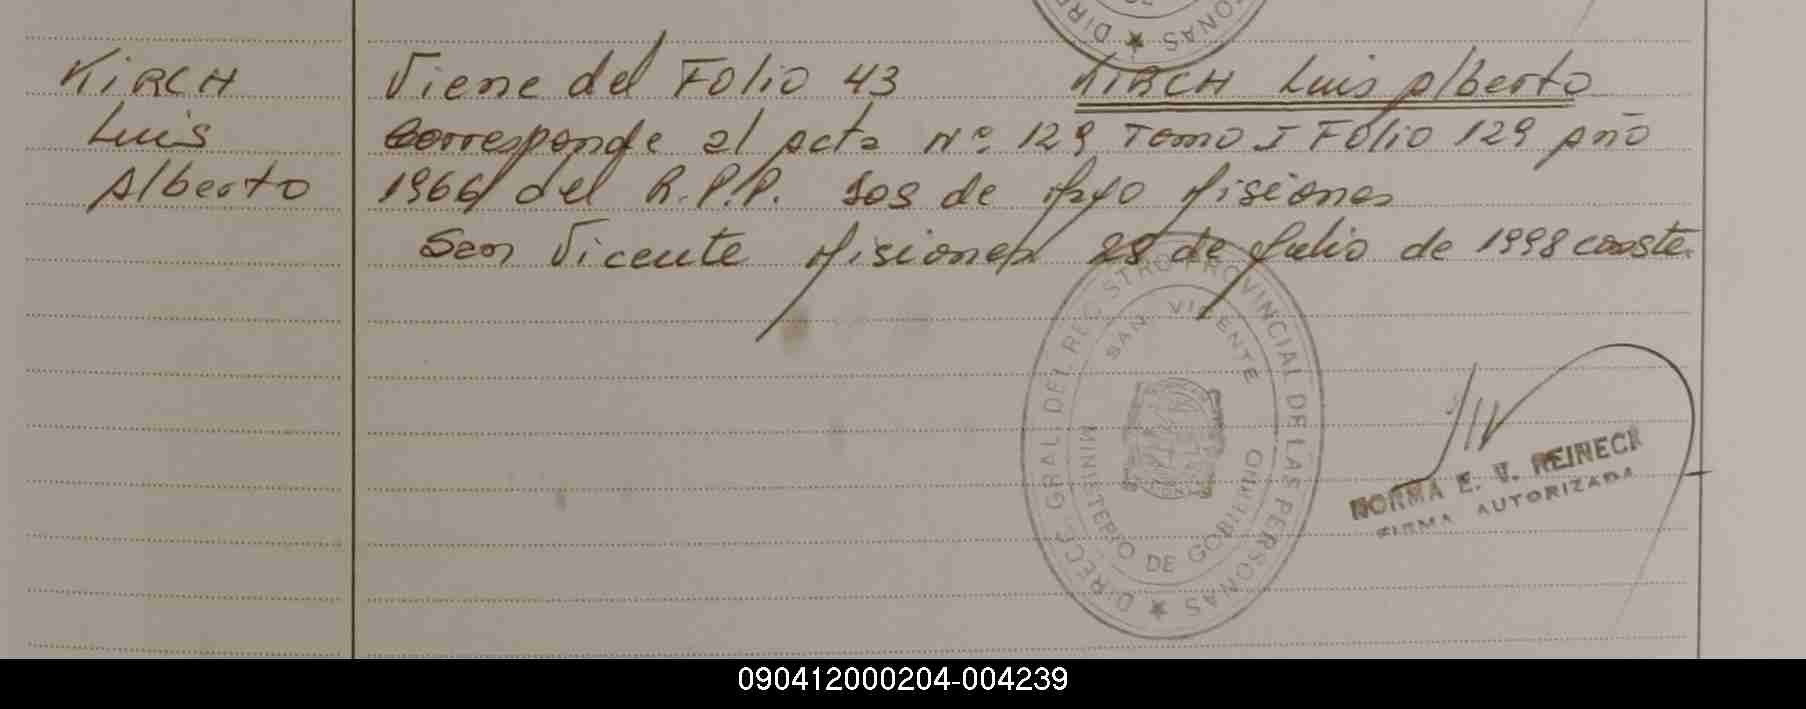 KiRCH
Luis
Alberto
Viene del Folio 43 KIRCH Luis Alberto
Corresponde al acta Nº 129 Tomo I Folio 129 Año
1966 del R.P.P. sos de Misiones
San Vicente Misiones 28 de Julio de 1998 conste.
DIRECC. GRAL. DEL REGISTRO PROVINCIAL DE LAS PERSONAS
SAN VICENTE
MINISTERIO DE GOBIERNO
NORMA E. V. REINECK
FIRMA AUTORIZADA
090412000204-004239